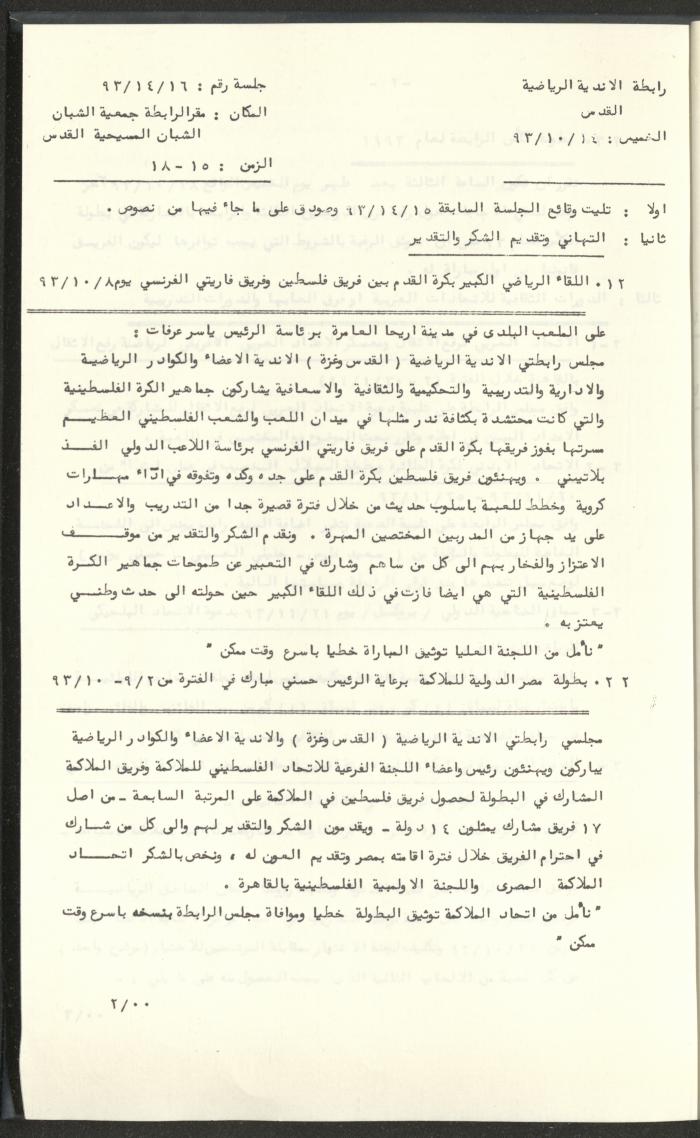 رابطة الاندية الرياضية
القدس
الخميس : ٩٣/١٠/١٤
جلسة رقم : ٩٣/١٤/١٦
المكان : مقرالرابطة جمعية الشبان
الشبان المسيحية القدس
الزمن : ١٥ - ١٨
اولا : تليت وقائع الجلسة السابقة ٩٣/١٤/١٥ وصودق على ما جاء فيها من نصوص .
ثانيا : التهاني وتقديم الشكر والتقدير
١٢ . اللقاء الرياضي الكبير بكرة القدم بين فريق فلسطين وفريق فاريتي الفرنسي يوم ٩٣/١٠/٨
على الملعب البلدى في مدينة اريحا العامرة برئاسة الرئيس ياسر عرفات :
مجلس رابطتي الاندية الرياضية ( القدس وغزة ) الاندية الاعضاء والكوادر الرياضية
والادارية والتدريبية والتحكيمية والثقافية والاسعافية يشاركون جماهير الكرة الفلسطينية
والتي كانت محتشدة بكثافة ندر مثلها في ميدان اللعب والشعب الفلسطيني العظيم
مسرتها بفوز فريقها بكرة القدم على فريق فاريتي الفرنسي برئاسة اللاعب الدولي الفذ
بلاتيني . ويهنئون فريق فلسطين بكرة القدم على جده وكده وتفوقه في اداء مهارات
كروية وخطط للعبة باسلوب حديث من خلال فترة قصيرة جدا من التدريب والاعداد
على يد جهاز من المدربين المختصين المهرة . ونقدم الشكر والتقدير من موقف
الاعتزاز والفخار بهم الى كل من ساهم وشارك في التعبير عن طموحات جماهير الكرة
الفلسطينية التي هي ايضا فازت في ذلك اللقاء الكبير حين حولته الى حدث وطني
يعتز به .
" نأمل من اللجنة العليا توثيق المباراة خطيا باسرع وقت ممكن "
٢٢ . بطولة مصر الدولية للملاكمة برعاية الرئيس حسني مبارك في الفترة من ٩/٢ - ٩٣/١٠
مجلسي رابطتي الاندية الرياضية ( القدس وغزة ) والاندية الاعضاء والكوادر الرياضية
يباركون ويهنئون رئيس واعضاء اللجنة الفرعية للاتحاد الفلسطيني للملاكمة وفريق الملاكمة
المشارك في البطولة لحصول فريق فلسطين في الملاكمة على المرتبة السابعة - من اصل
١٧ فريق مشارك يمثلون ١٤ دولة - ويقدمون الشكر والتقدير لهم والى كل من شارك
في احترام الفريق خلال فترة اقامته بمصر وتقديم العون له ، ونخص بالشكر اتحاد
الملاكمة المصرى واللجنة الاولمبية الفلسطينية بالقاهرة .
" نأمل من اتحاد الملاكمة توثيق البطولة خطيا وموافاة مجلس الرابطة بنسخه باسرع وقت
ممكن "
٢/٠٠